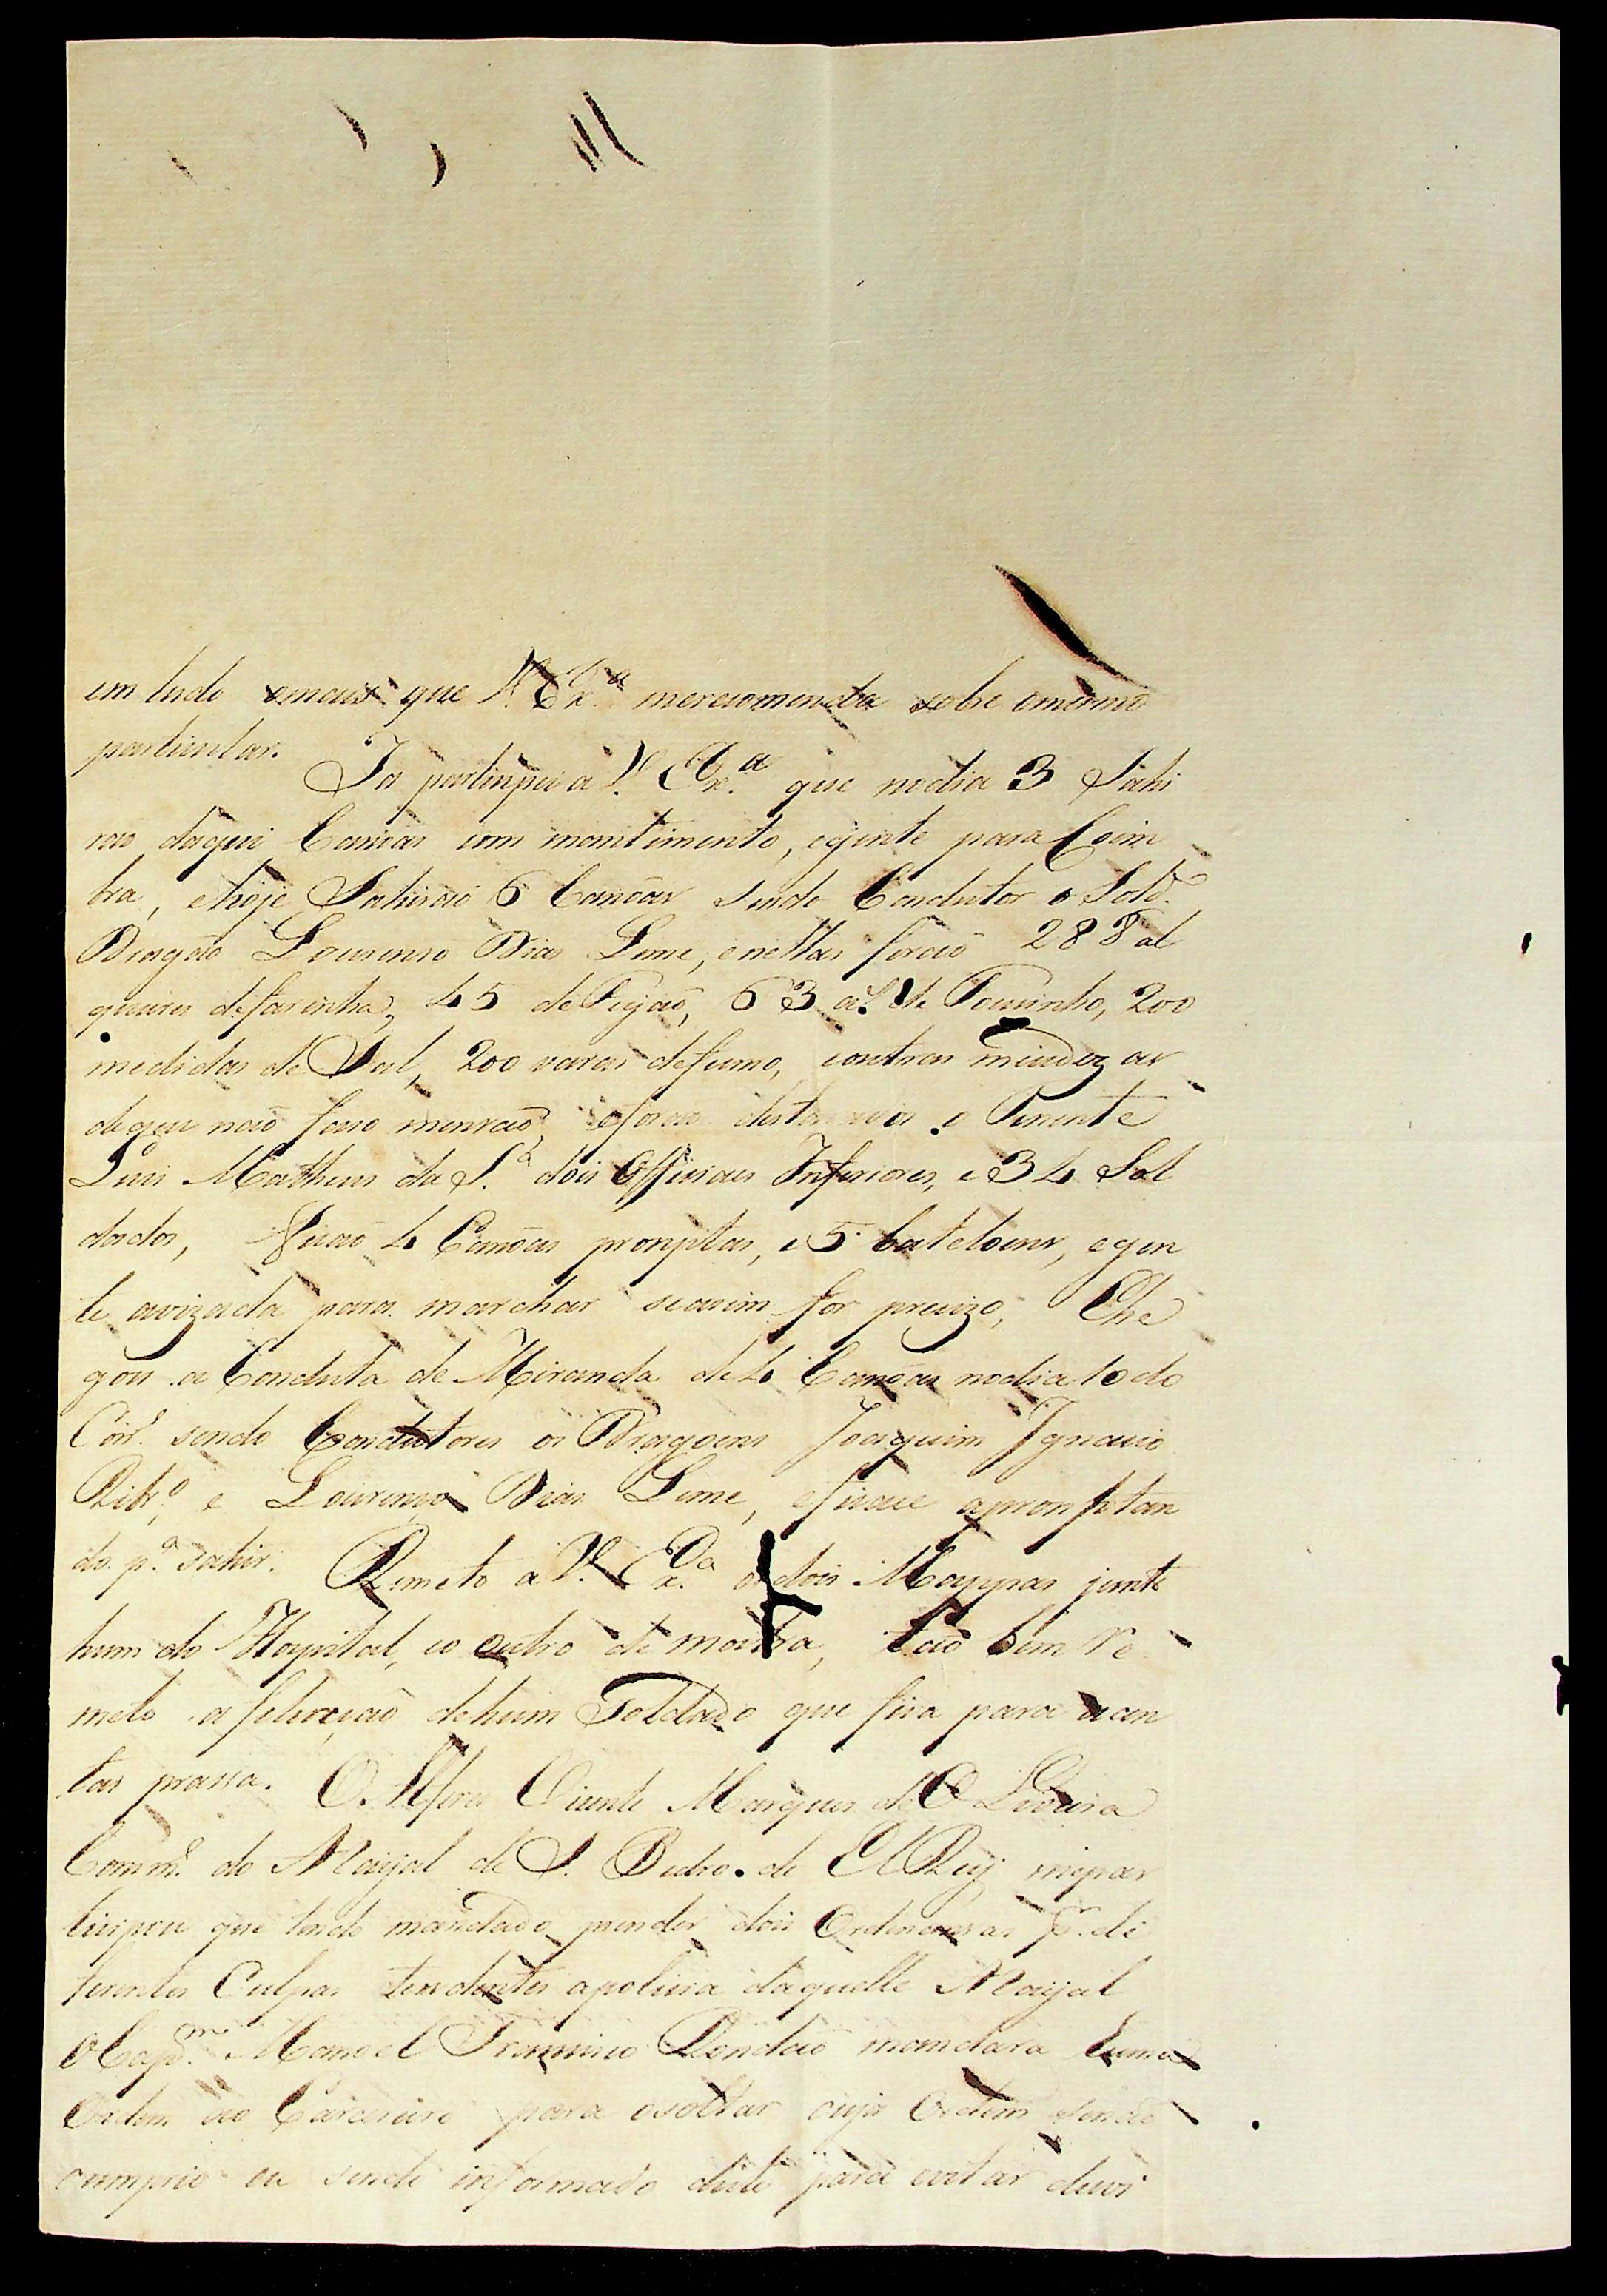 em tudo emais que V. Exª. merecomenda sobre omesmo
particular.
Ja partinpei a V. Exª. que nodia 3 Sahi
rao daqui Canoas com mantimento, egente para Coim
bra, ehoje Sahiraõ 6 Canoas sendo Condutor o Sold.
Dragaõ Lourenso Dias Leme, enellas foraõ 288 al
queires defarinha, 45 deFeijaõ, 63 de Toucinho, 200
medidas de Sal, 200 varas defumo, eoutras miudezas
deque naõ faso mensaõ, eforaõ o Tenente
Luis Matheus da S.ª dois Officiaes Inferiores, e 34 Sol
dados, Ficaõ 4 Canoas promptas, e 5 bateloens, egen
te avizada para marchar seasim for precizo, Che
gou a Conduta de Miranda de 4 Canoas nodia 10 do
Corr.e sendo Condutores os Dragoens Joaquim Ignacio
Ribr.º e Lourenço Dias Leme, eficaõ apromptan
do p.ª sahir.
Remeto a V. Exª. os dois Mappas junto
hum do Hospital, eo outro de mostra, taõ bem re
meto a hum Soldado que para
tar prassa.
O Alferes Vicente Marques de O Liveira
Comm.e do Arraijal de S. Pedro de El Rey mepar
ticipou que tendo mandado prender dois Ordenansas p.r di
ferentes Culpas tendentes apolicia daquelle Arraijal
OCap.m Manoel Francisco Rondaõ mandara huma
Ordem ao Carcereiro para osoltar cuja Ordem senaõ
cumprio eu sendo informado deste para evitar duvi